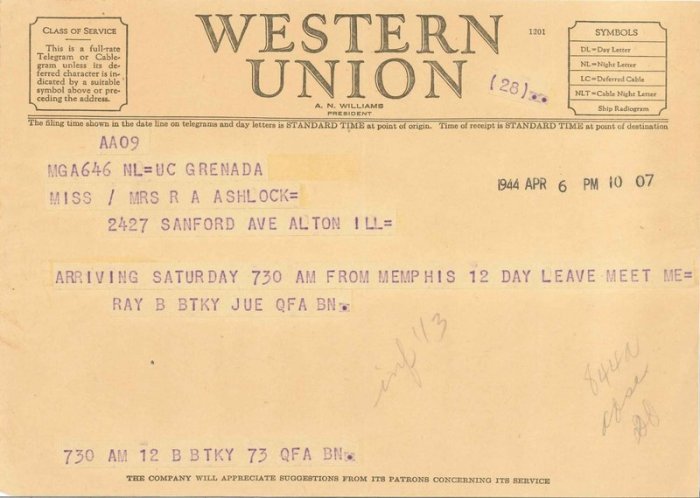 CLASS OF SERVICE
This is a full-rate
Telegram or Cable-
gram unless its de-
ferred character is in-
dicated by a suitable
symbol above or pre-
ceding the address.
WESTERN
UNION
A. N. WILLIAMS
PRESIDENT
1201
(28)
SYMBOLS
DL=Day Letter
NL=Night Letter
LC=Deferred Cable
NLT=Cable Night Letter
Ship Radiogram
The filing time shown in the date line on telegrams and day letters is STANDARD TIME at point of origin. Time of receipt is STANDARD TIME at point of destination
AA09
MGA646 NL=UC GRENADA
MISS / MRS R A ASHLOCK=
1944 APR 6 PM 10 07
2427 SANFORD AVE ALTON ILL=
ARRIVING SATURDAY 730 AM FROM MEMPHIS 12 DAY LEAVE MEET ME=
RAY B BTKY JUE QFA BN.
730 AM 12 B BTKY 73 QFA BN.
THE COMPANY WILL APPRECIATE SUGGESTIONS FROM ITS PATRONS CONCERNING ITS SERVICE